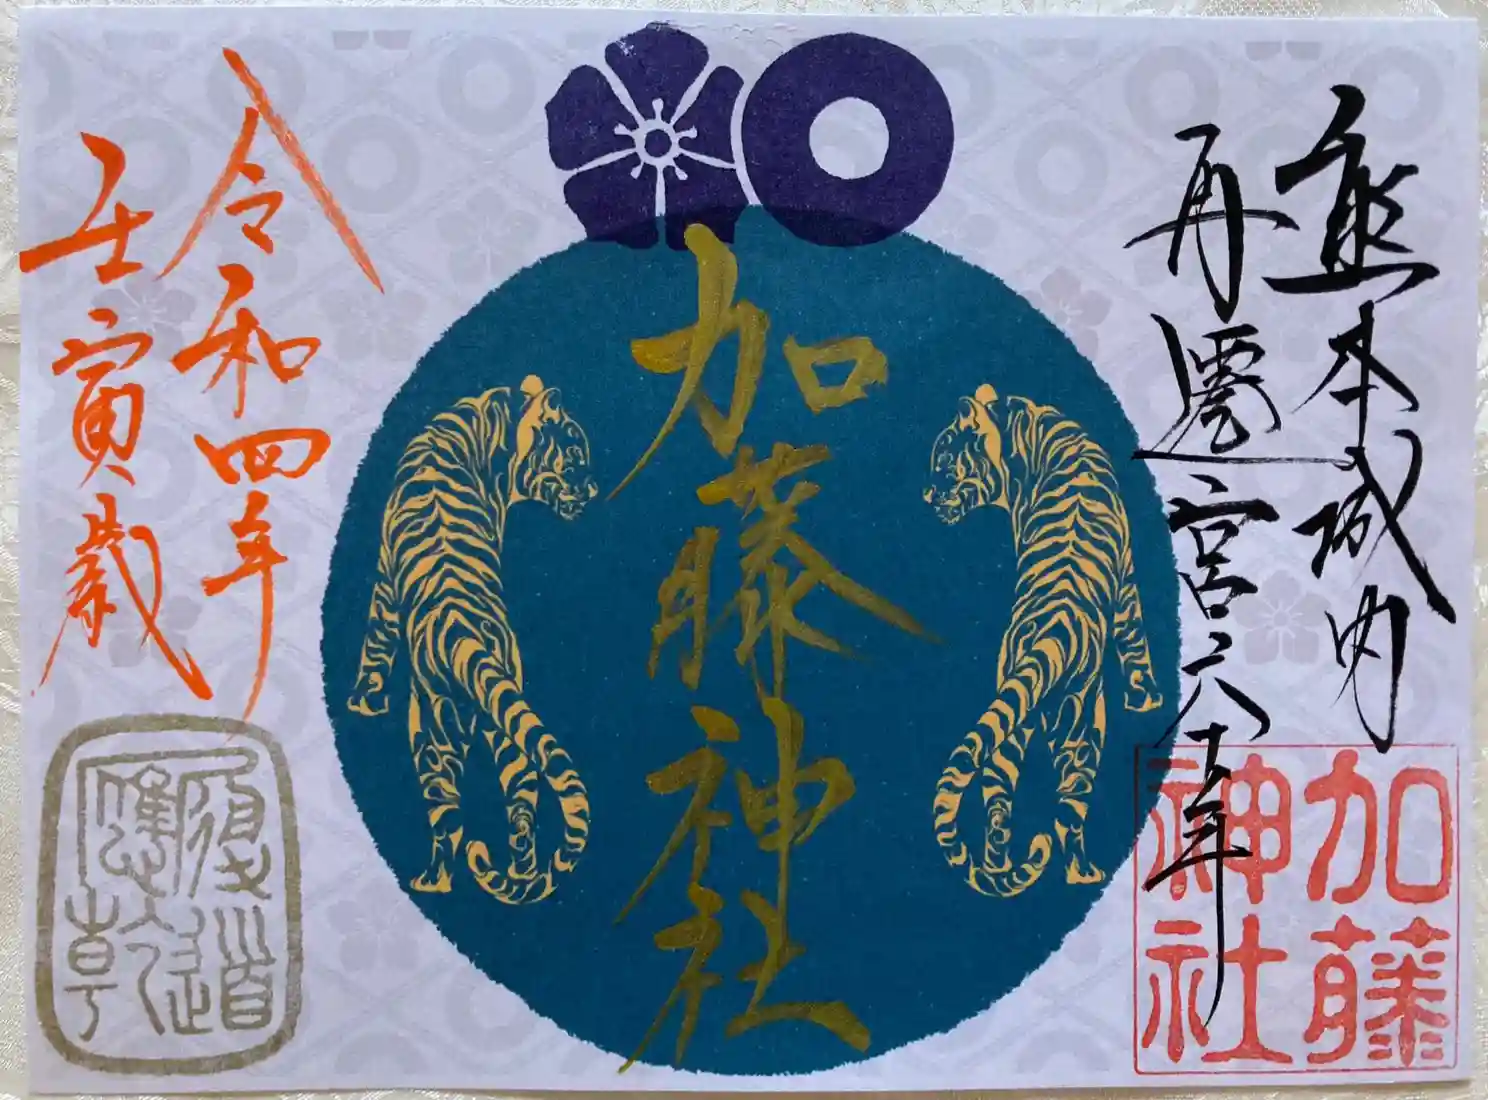 熊本城内
再遷宮六十年
加藤神社
加藤
神社
令和四年
壬寅歳